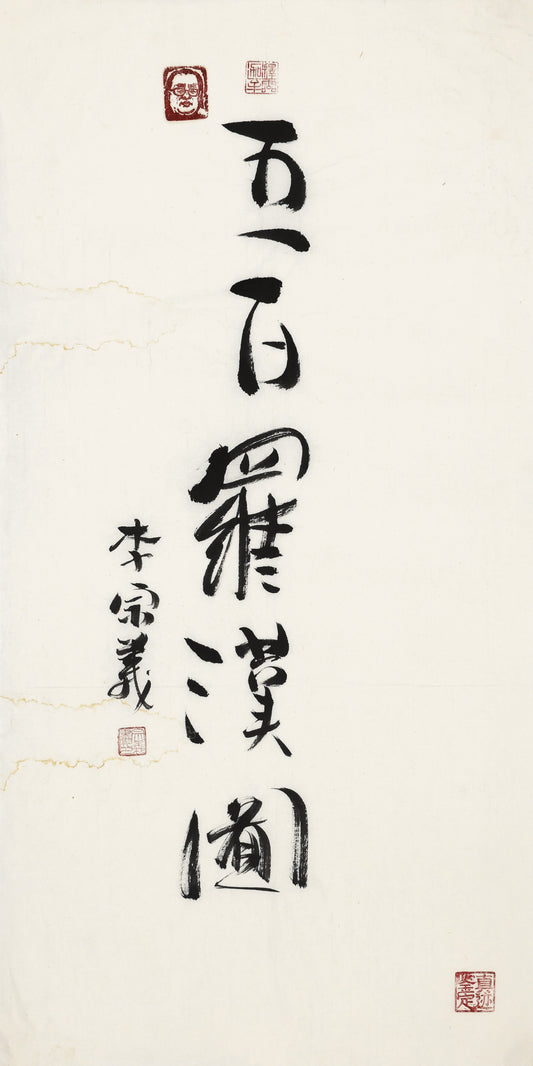 五百羅漢圖
李宗義
真迹
鑒定